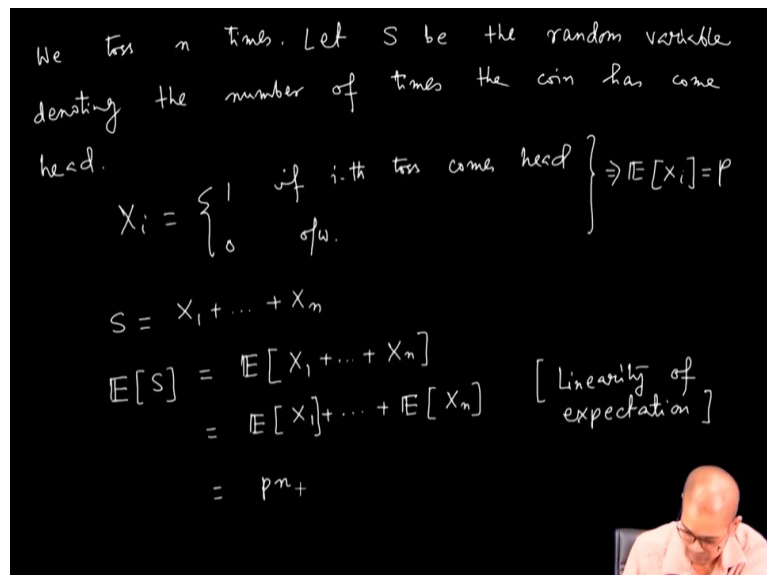 We toss n times. Let S be the random variable
denoting the number of times the coin has come
head.
Xi = { 1 if i-th toss comes head } ⇒ 𝔼[Xi] = p
0 o/w.
S = X₁ + ... + Xₙ
𝔼[S] = 𝔼[X₁ + ... + Xₙ]
= 𝔼[X₁] + ... + 𝔼[Xₙ] [Linearity of expectation]
= pn +